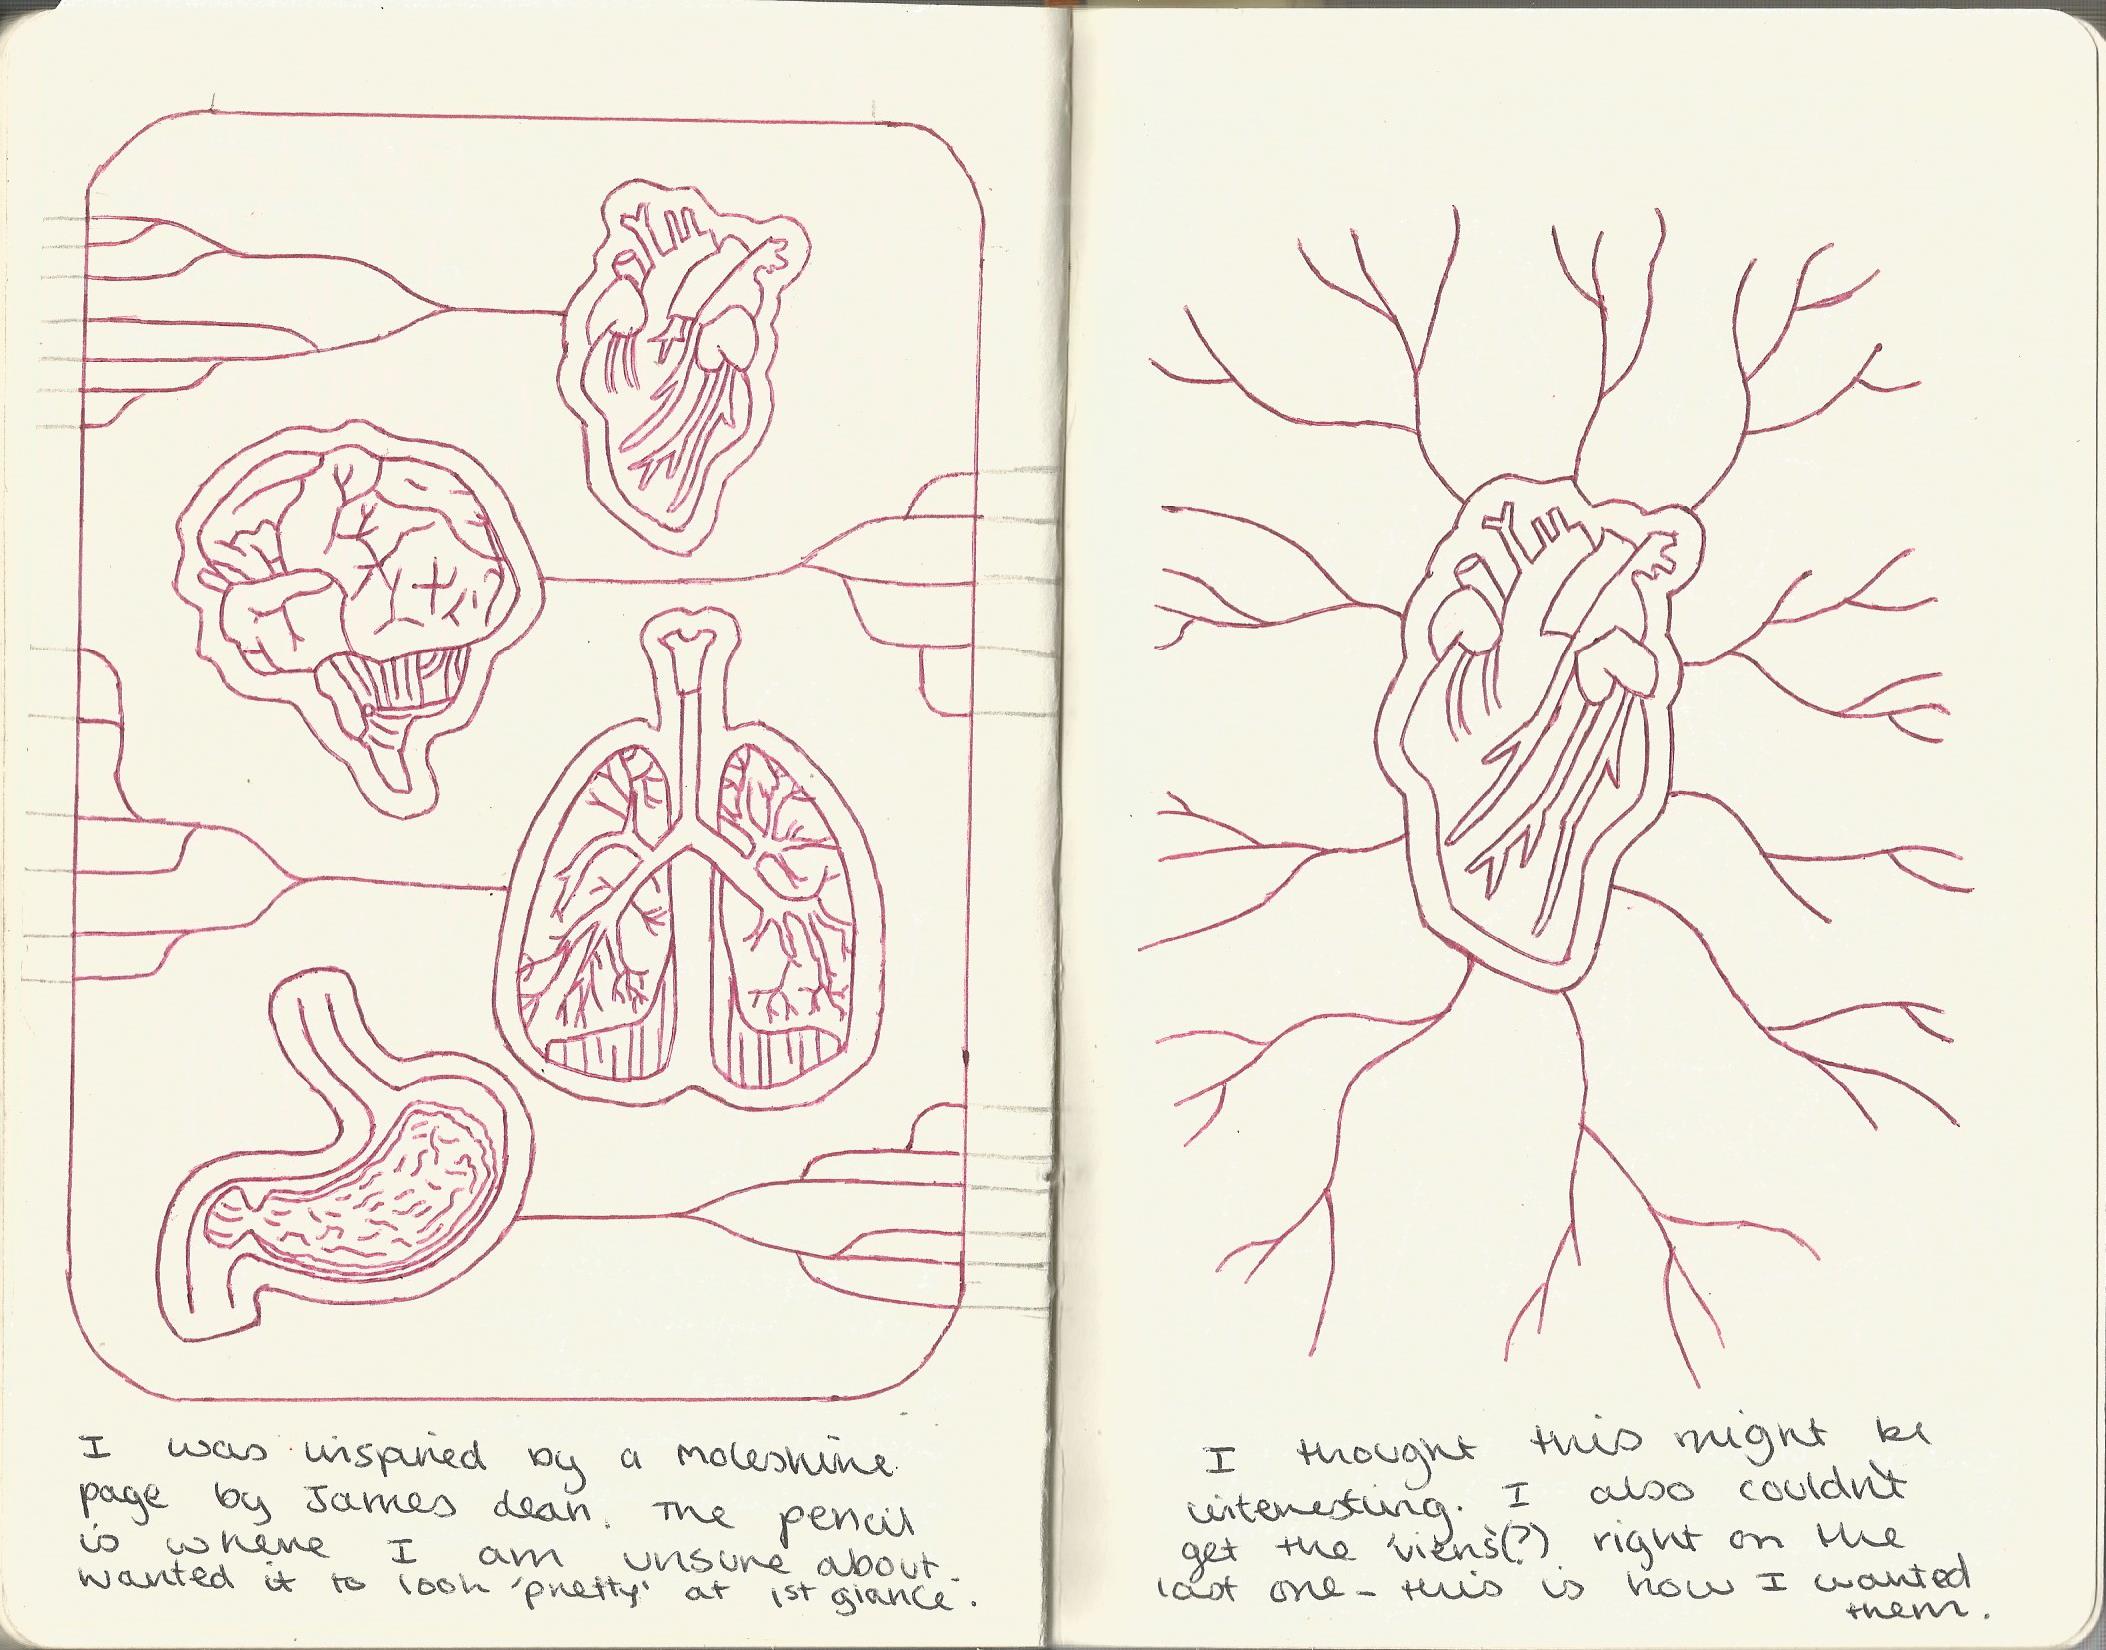 I was inspired by a moleskine
page by James dean. The pencil
is where I am unsure about.
wanted it to look 'pretty' at 1st glance.
I thought this might be
interesting. I also couldn't
get the 'viens(?) right on the
last one - this is how I wanted
them.